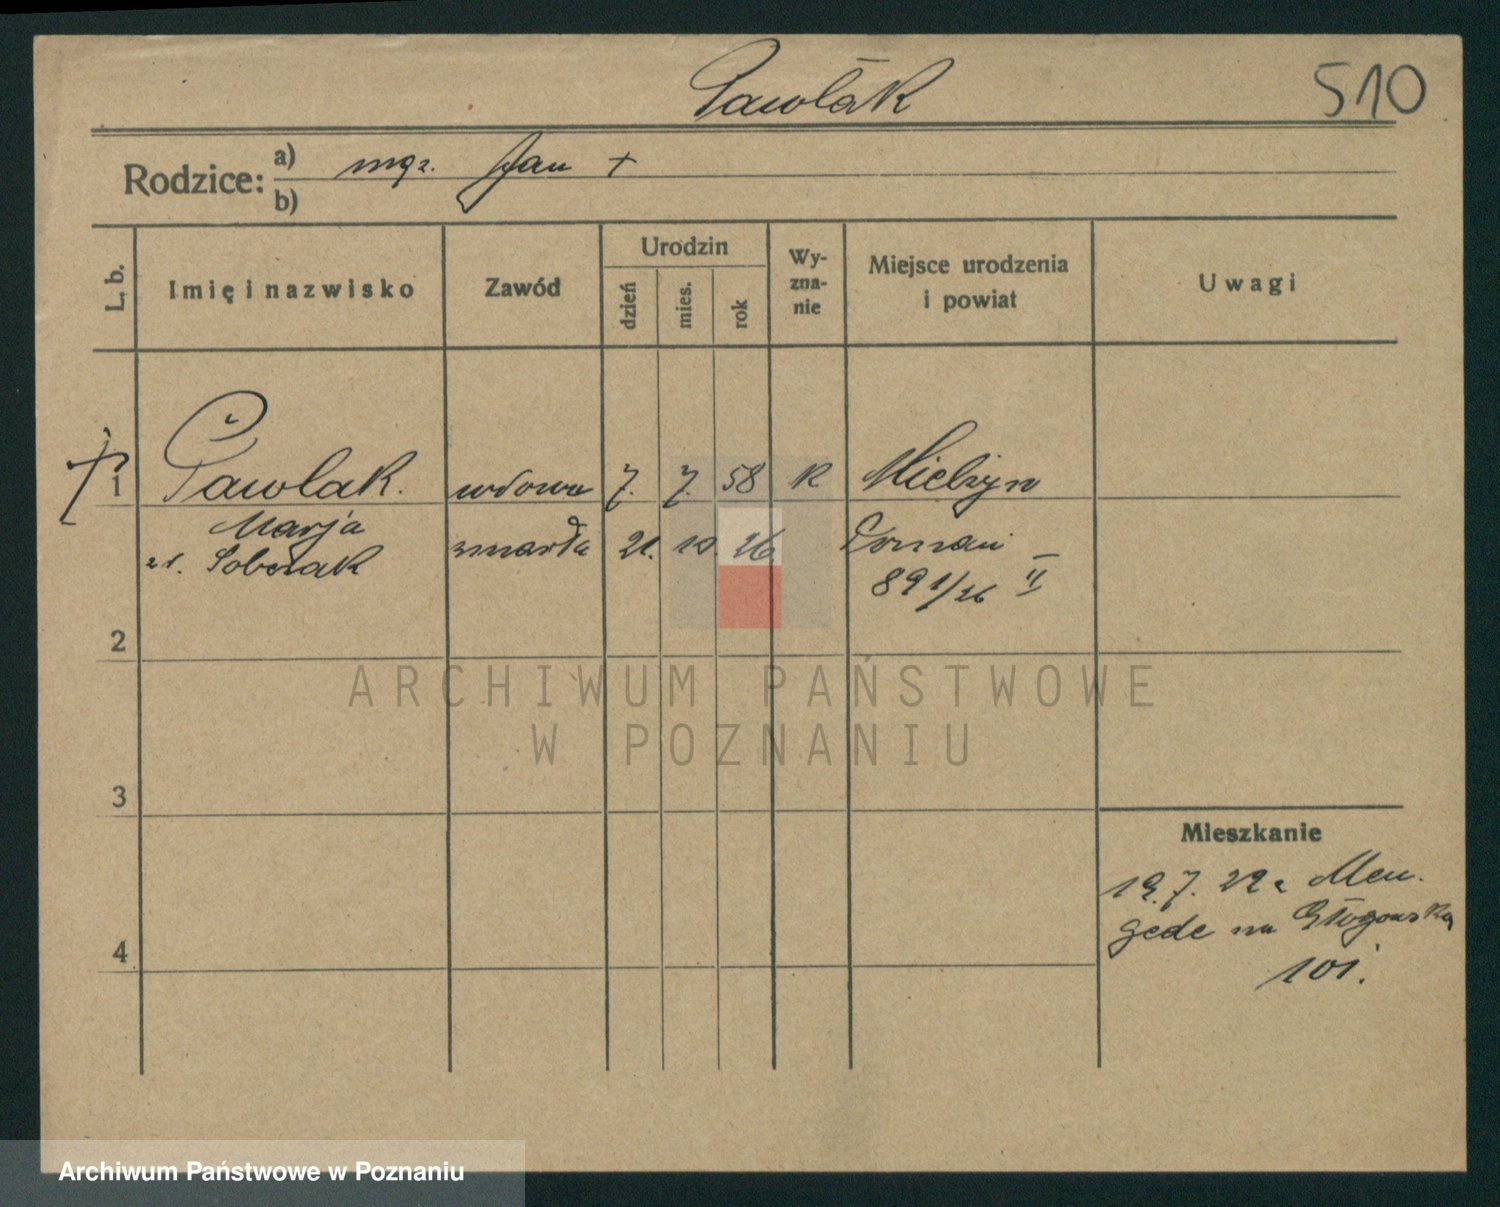 Pawlak
510
Rodzice:
a) mąż. Jan +
b)
L. b.
Imię i nazwisko
Zawód
Urodzin
dzień
mies.
rok
Wy-
zna-
nie
Miejsce urodzenia
i powiat
Uwagi
1 Pawlak. wdowa 7. 7. 58 K Mielżyn
Marja zmarła 21. 10. 26.
Soberak
891/26 II
2
3
4
Mieszkanie
19. 7. 22
na Głogowska
101.
ARCHIWUM PAŃSTWOWE
W POZNANIU
Archiwum Państwowe w Poznaniu